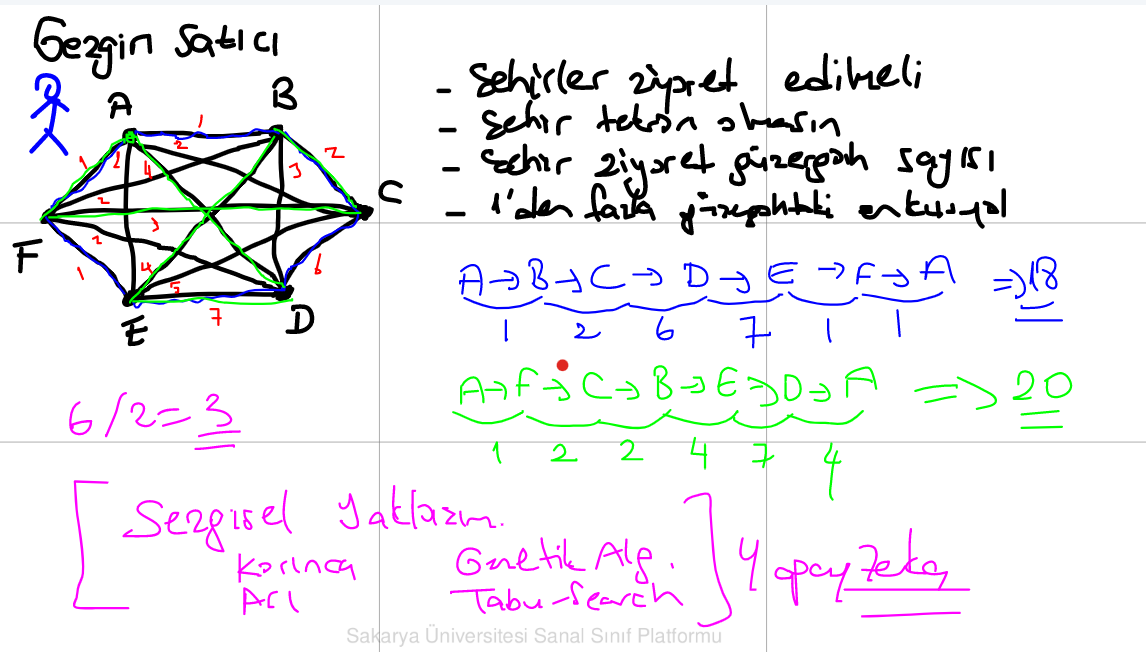 Gezgin Satıcı
A
B
C
D
E
F
1
2
2
1
1
4
3
2
3
2
1
4
5
6
7
- Şehirler ziyaret edilmeli
- Şehir tekrarı olmasın
- Şehir ziyaret güzergah sayısı
- 1'den fazla güzergahtaki en kısa yol
A → B → C → D → E → F → A => 18
1 2 6 7 1 1
A → F → C → B → E => D → A => 20
1 2 2 4 7 4
6/2 = 3
[ Sezgisel Yaklaşım.
Karınca Genetik Alg.
Arı Tabu-Search ] Yapay Zeka
Sakarya Üniversitesi Sanal Sınıf Platformu